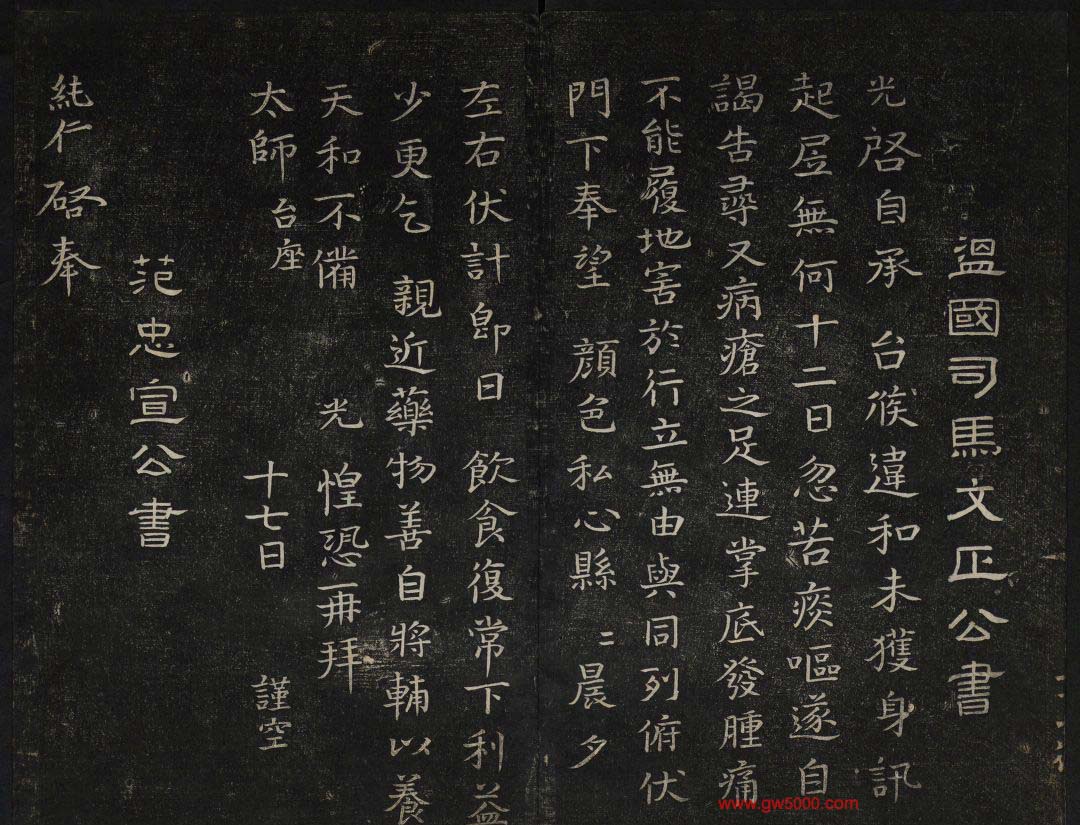 溫國司馬文正公書
光啓自承 台候違和未獲身訊
起居無何十二日忽苦痰嘔遂自
謁告尋又病瘡之足連掌底發腫痛
不能履地害於行立無由與同列俯伏
門下奉望 顏色私心縣〻晨夕
左右伏計即日 飲食復常下利益
少更乞 親近藥物善自將輔以養
天和不備 光 惶恐再拜
太師 台座 十七日 謹空
范忠宣公書
純仁啓奉
www.gw5000.com